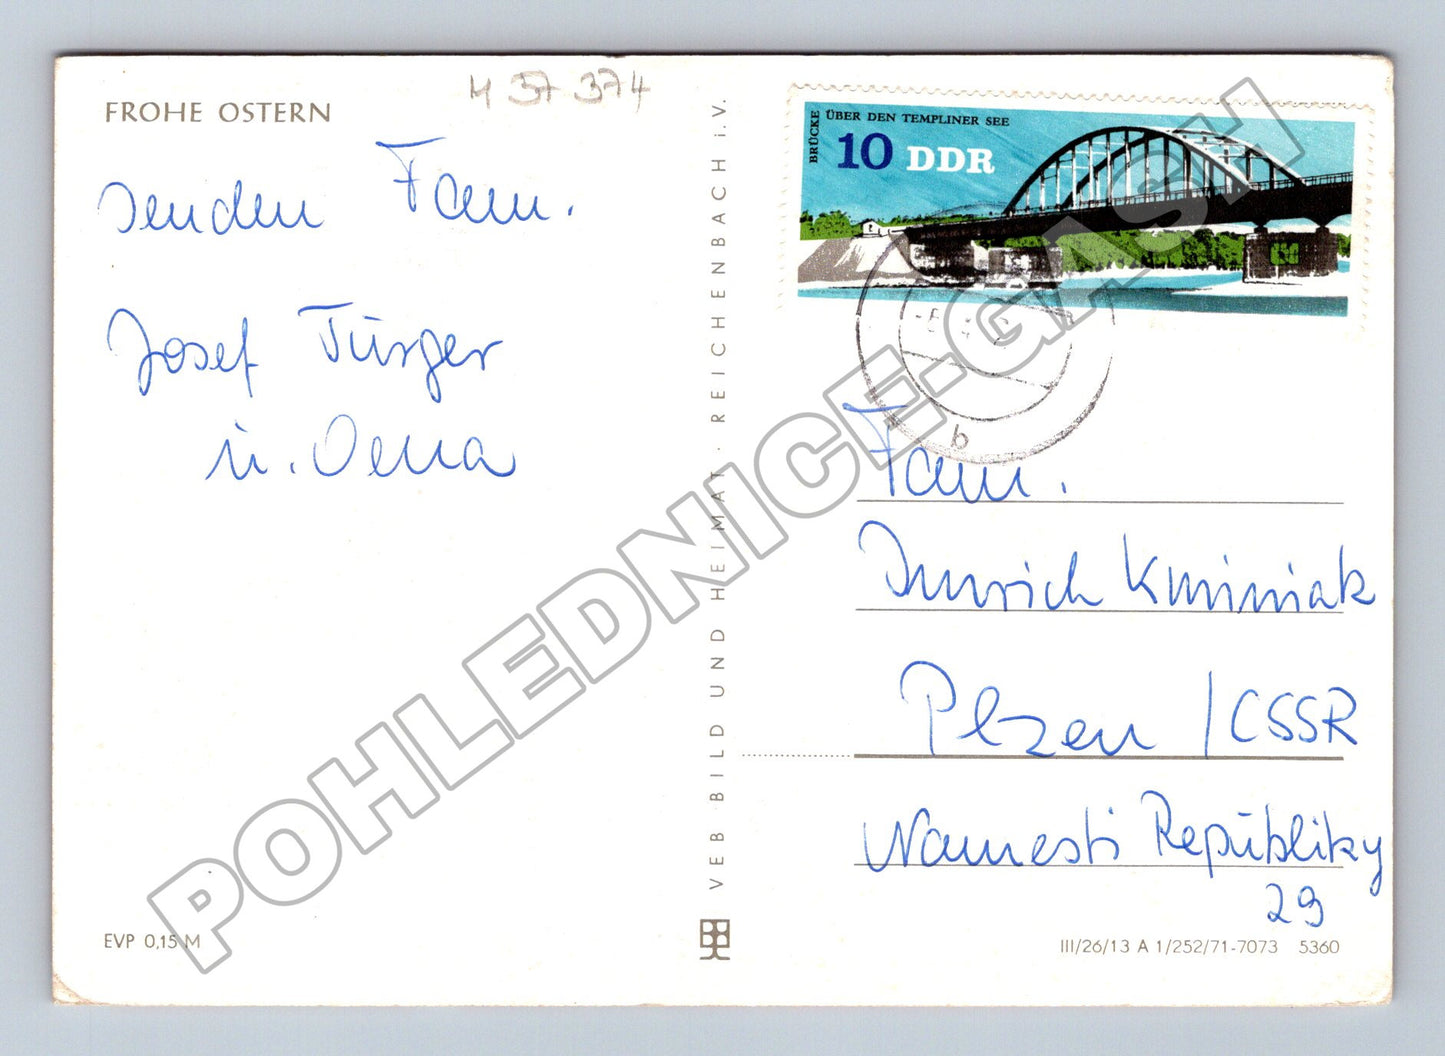 FROHE OSTERN
H 37 374
senden Fam.
Josef Türger
u. Oena
EVP 0,15 M
VEB BILD UND HEIMAT · REICHENBACH i. V.
BRÜCKE ÜBER DEN TEMPLINER SEE
10 DDR
b
Fam.
Kminiak
Plzen / CSSR
Namesti Republiky
29
III/26/13 A 1/252/71-7073 5360
POHLEDNICE-GASH